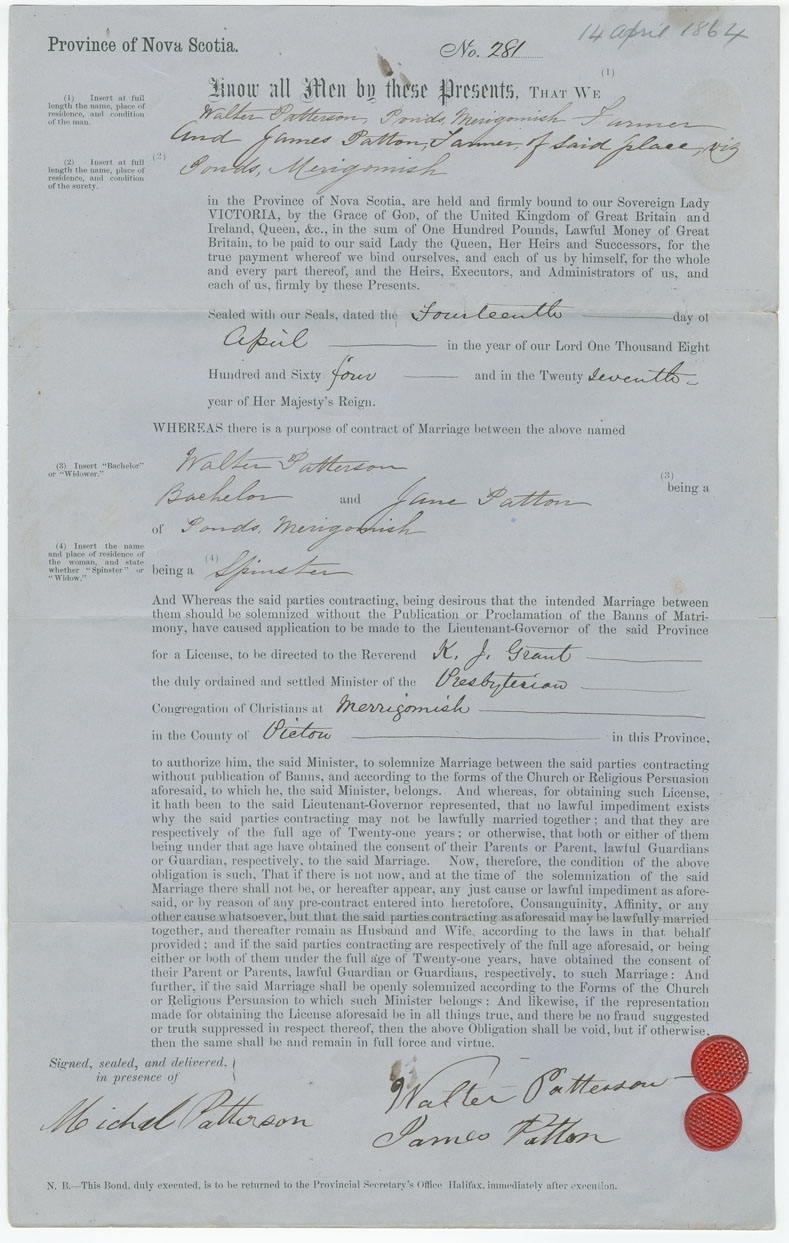 14 April 1864
Province of Nova Scotia.
No. 281
(1)
Know all Men by these Presents, THAT WE
(1) Insert at full
length the name, place of
residence, and condition
of the man.
Walter Patterson, Ponds, Merigomish Farmer
and James Patton, Farmer, of said place, viz
(2) Insert at full
length the name, place of
residence, and condition
of the surety.
(2)
Ponds, Merigomish
in the Province of Nova Scotia, are held and firmly bound to our Sovereign Lady
VICTORIA, by the Grace of GOD, of the United Kingdom of Great Britain and
Ireland, Queen, &c., in the sum of One Hundred Pounds, Lawful Money of Great
Britain, to be paid to our said Lady the Queen, Her Heirs and Successors, for the
true payment whereof we bind ourselves, and each of us by himself, for the whole
and every part thereof, and the Heirs, Executors, and Administrators of us, and
each of us, firmly by these Presents.
Sealed with our Seals, dated the Fourteenth day of
April in the year of our Lord One Thousand Eight
Hundred and Sixty four and in the Twenty seventh
year of Her Majesty's Reign.
WHEREAS there is a purpose of contract of Marriage between the above named
(3) Insert "Bachelor"
or "Widower."
Walter Patterson
(3)
being a
Bachelor and Jane Patton
of Ponds, Merigomish
(4) Insert the name
and place of residence of
the woman, and state
whether "Spinster" or
"Widow."
(4)
being a Spinster
And Whereas the said parties contracting, being desirous that the intended Marriage between
them should be solemnized without the Publication or Proclamation of the Banns of Matri-
mony, have caused application to be made to the Lieutenant-Governor of the said Province
for a License, to be directed to the Reverend K. J. Grant
the duly ordained and settled Minister of the Presbyterian
Congregation of Christians at Merrigomish
in the County of Pictou in this Province,
to authorize him, the said Minister, to solemnize Marriage between the said parties contracting
without publication of Banns, and according to the forms of the Church or Religious Persuasion
aforesaid, to which he, the said Minister, belongs. And whereas, for obtaining such License,
it hath been to the said Lieutenant-Governor represented, that no lawful impediment exists
why the said parties contracting may not be lawfully married together; and that they are
respectively of the full age of Twenty-one years; or otherwise, that both or either of them
being under that age have obtained the consent of their Parents or Parent, lawful Guardians
or Guardian, respectively, to the said Marriage. Now, therefore, the condition of the above
obligation is such, That if there is not now, and at the time of the solemnization of the said
Marriage there shall not be, or hereafter appear, any just cause or lawful impediment as afore-
said, or by reason of any pre-contract entered into heretofore, Consanguinity, Affinity, or any
other cause whatsoever, but that the said parties contracting as aforesaid may be lawfully married
together, and thereafter remain as Husband and Wife, according to the laws in that behalf
provided; and if the said parties contracting are respectively of the full age aforesaid, or being
either or both of them under the full age of Twenty-one years, have obtained the consent of
their Parent or Parents, lawful Guardian or Guardians, respectively, to such Marriage: And
further, if the said Marriage shall be openly solemnized according to the Forms of the Church
or Religious Persuasion to which such Minister belongs: And likewise, if the representation
made for obtaining the License aforesaid be in all things true, and there be no fraud suggested
or truth suppressed in respect thereof, then the above Obligation shall be void, but if otherwise,
then the same shall be and remain in full force and virtue.
Signed, sealed, and delivered,
in presence of
Walter Patterson
Michel Patterson
James Patton
N. B.—This Bond, duly executed, is to be returned to the Provincial Secretary's Office Halifax, immediately after execution.